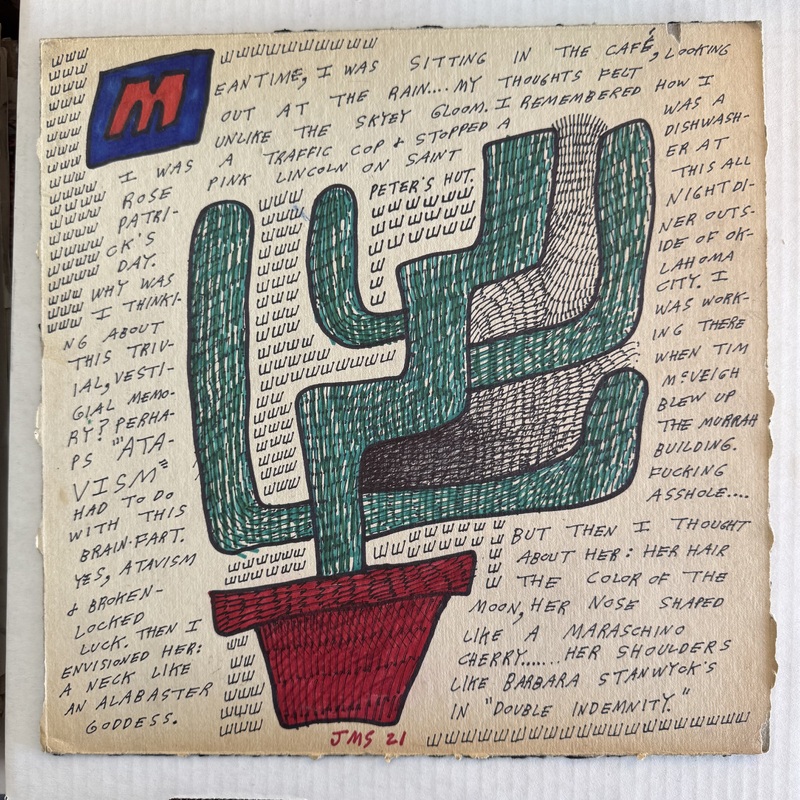 MEANTIME, I WAS SITTING IN THE CAFÉ, LOOKING
OUT AT THE RAIN.... MY THOUGHTS FELT
UNLIKE THE SKYEY GLOOM. I REMEMBERED HOW I
WAS A
DISHWASH-
ER AT
THIS ALL
NIGHT DI-
NER OUTS-
IDE OF OK-
LAHOMA
CITY. I
WAS WORK-
ING THERE
WHEN TIM
McVEIGH
BLEW UP
THE MURRAH
BUILDING.
FUCKING
ASSHOLE....
I WAS A TRAFFIC COP & STOPPED A
ROSE PINK LINCOLN ON SAINT
PETER'S HUT.
PATRI-
CK'S
DAY.
WHY WAS
I THINKI-
NG ABOUT
THIS TRIV-
IAL, VESTI-
GIAL MEMO-
RY? PERHA-
PS "'ATA-
VISM"
HAD TO DO
WITH THIS
BRAIN-FART.
YES, ATAVISM
& BROKEN-
LOCKED
LUCK. THEN I
ENVISIONED HER:
A NECK LIKE
AN ALABASTER
GODDESS.
BUT THEN I THOUGHT
ABOUT HER: HER HAIR
THE COLOR OF THE
MOON, HER NOSE SHAPED
LIKE A MARASCHINO
CHERRY...... HER SHOULDERS
LIKE BARBARA STANWYCK'S
IN "DOUBLE INDEMNITY."
JMS 21